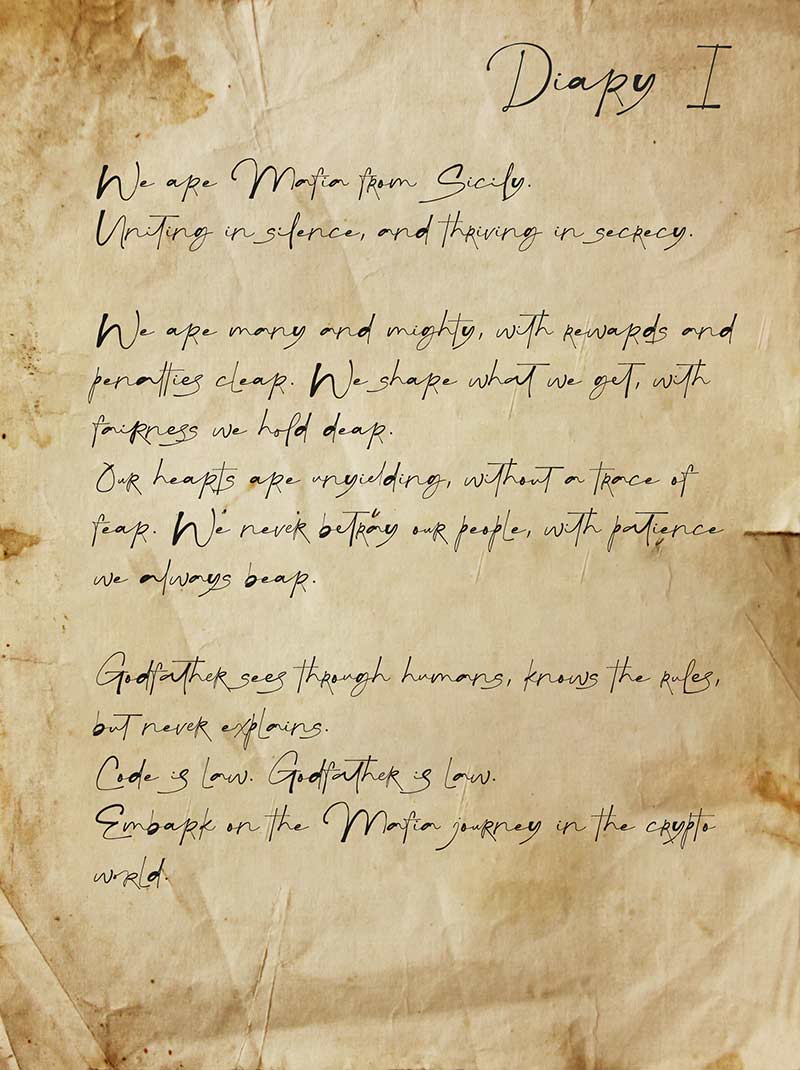 Diary I
We are Mafia from Sicily.
Uniting in silence, and thriving in secrecy.
We are many and mighty, with rewards and
penalties clear. We share what we get, with
fairness we hold dear.
Our hearts are unyielding, without a trace of
fear. We never betray our people, with patience
we always bear.
Godfather sees through humans, knows the rules,
but never explains.
Code is law. Godfather is law.
Embark on the Mafia journey in the crypto
world.